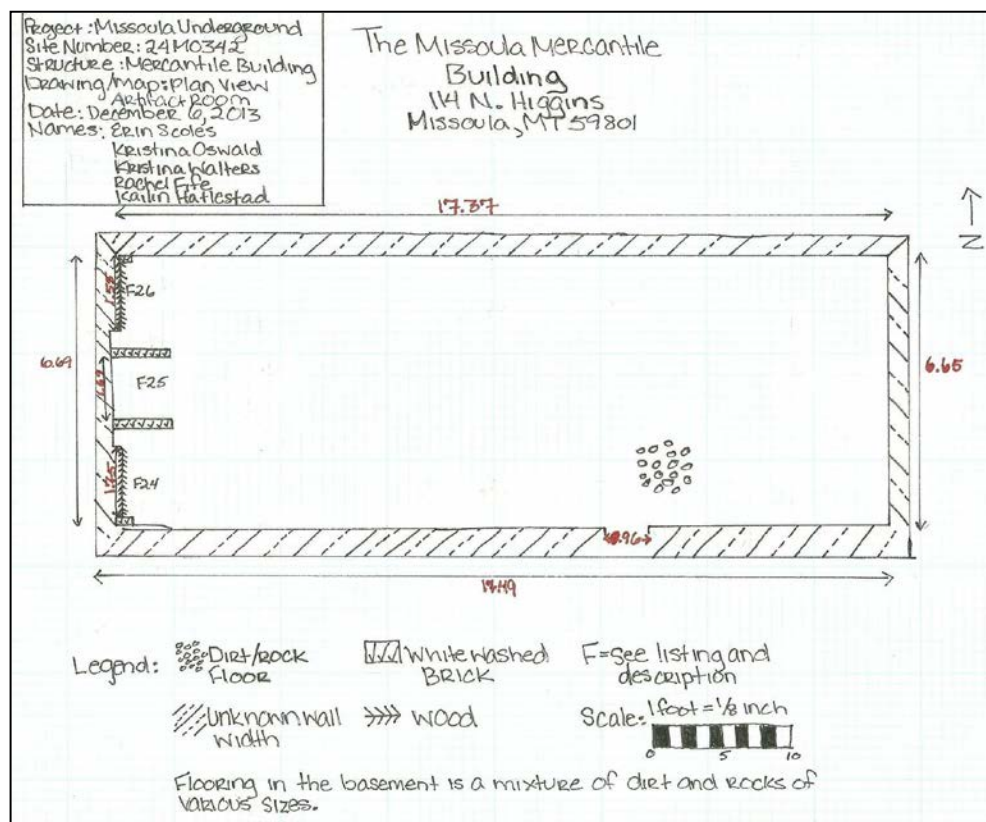 Project: Missoula Underground
Site Number: 24MO342
Structure: Mercantile Building
Drawing/Map: Plan View
Artifact Room
Date: December 6, 2013
Names: Erin Scoles
Kristina Oswald
Kristina Walters
Rachel Fife
Kailin Hatlestad
The Missoula Mercantile
Building
114 N. Higgins
Missoula, MT 59801
17.37
N
F26
6.69
F25
1.69
6.65
F24
.96
17.49
Legend:
Dirt/Rock
Floor
White washed
Brick
F=see listing and
description
Unknown wall
width
wood
Scale: 1 foot = 1/8 inch
0 5 10
Flooring in the basement is a mixture of dirt and rocks of
various sizes.